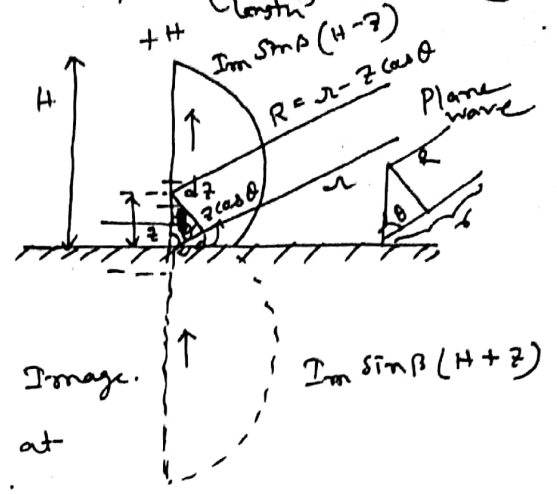 (length)
+H
Im Sinβ(H-z)
H
R = r - z cosθ
Plane
wave
dz
z cosθ
r
R
z
θ
θ
Image.
Im Sinβ(H+z)
at